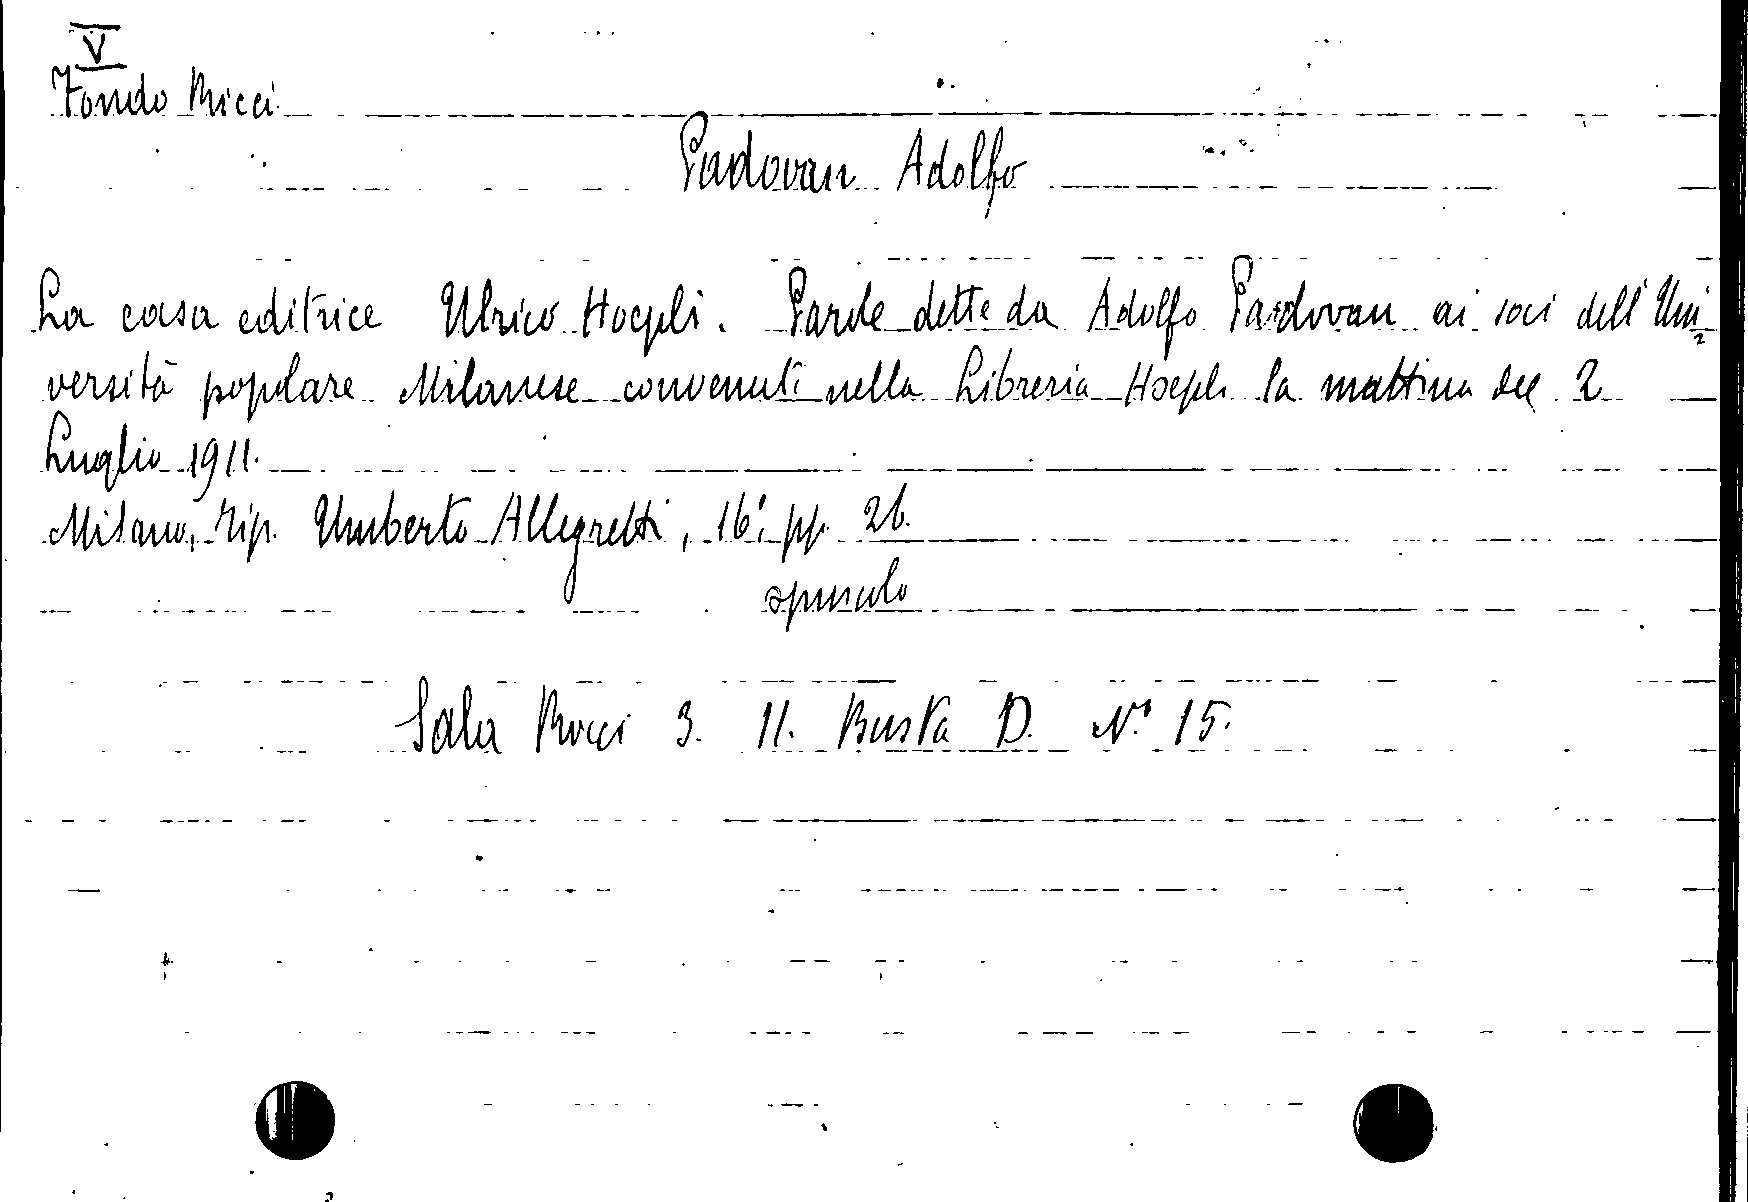 V
Fondo Ricci
Padovan Adolfo
La casa editrice Ulrico Hoepli. Parole dette da Adolfo Padovan ai soci dell'Uni=
versità popolare Milanese convenuti nella Libreria Hoepli la mattina del 2
Luglio 1911.
Milano, Tip. Umberto Allegretti, 16°, pp. 26.
opuscolo
Sala Ricci 3. 11. Busta D. N° 15.